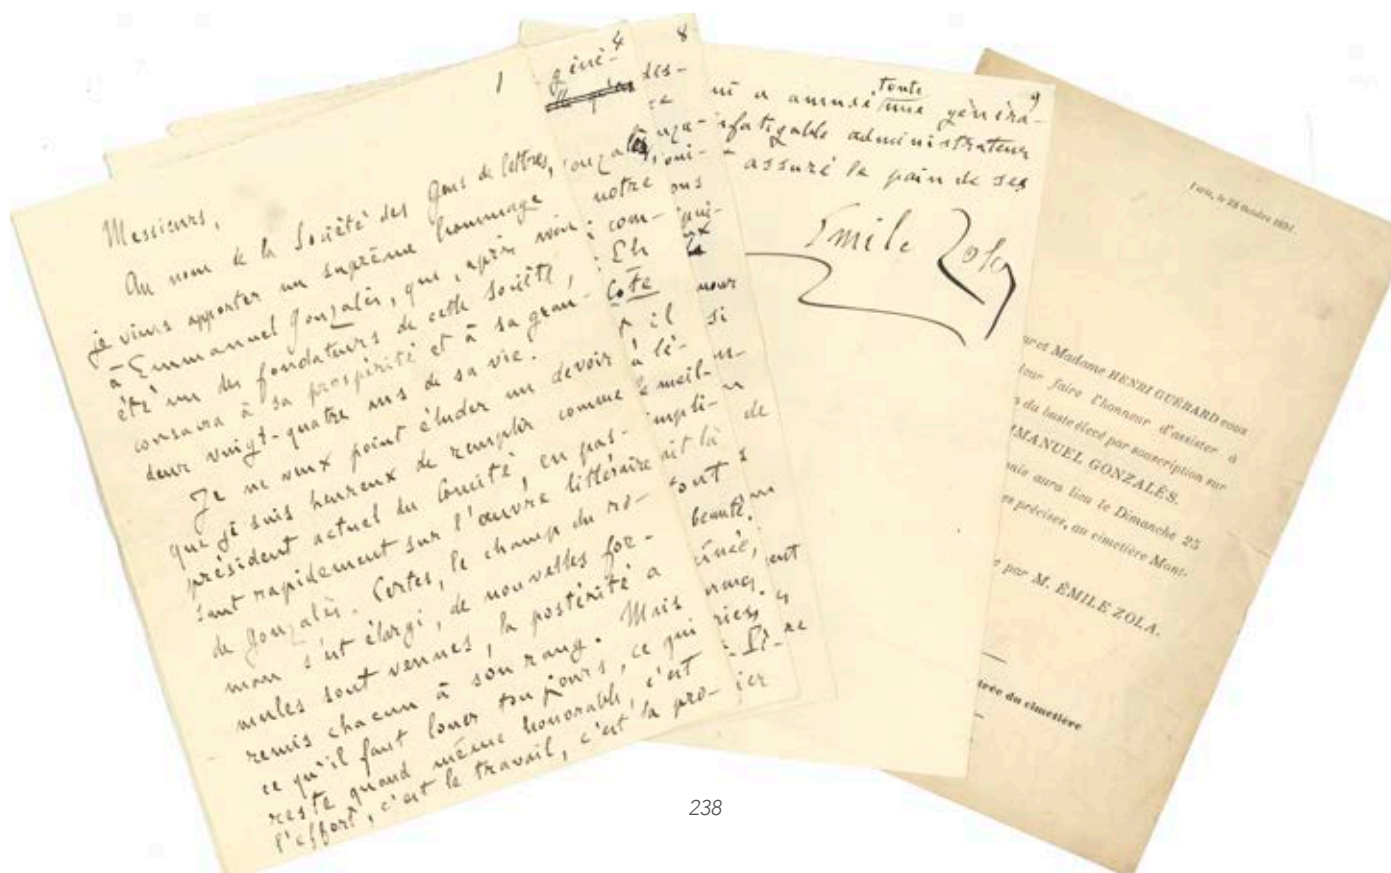 1
Messieurs,
Au nom de la Société des Gens de lettres,
je viens apporter un suprême hommage
à Emmanuel Gonzalès, qui, après avoir
été un des fondateurs de cette Société,
consacra à sa prospérité et à sa gran-
deur vingt-quatre ans de sa vie.
Je ne veux point éluder un devoir
que je suis heureux de remplir comme
président actuel du Comité, en pas-
sant rapidement sur l'œuvre littéraire
de Gonzalès. Certes, le champ du ro-
man s'est élargi, de nouvelles for-
mules sont venues, la postérité a
remis chacun à son rang. Mais
ce qu'il faut louer toujours, ce qui
reste quand même honorable, c'est
l'effort, c'est le travail, c'est la pro-
4
géné-
notre
com-
Eh
Cote
il
à lé-
meil-
impli-
ait là
8
des-
ons
nour
si
de
sont
beauté.
9
a amusé toute une généra-
infatigable administrateur
assuré le pain de ses
Emile Zola
Paris, le 23 Octobre 1891.
et Madame HENRI GUÉRARD vous
leur faire l'honneur d'assister à
du buste élevé par souscription sur
EMMANUEL GONZALÈS.
mais aura lieu le Dimanche 25
es précises, au cimetière Mont-
par M. ÉMILE ZOLA.
trée du cimetière
238